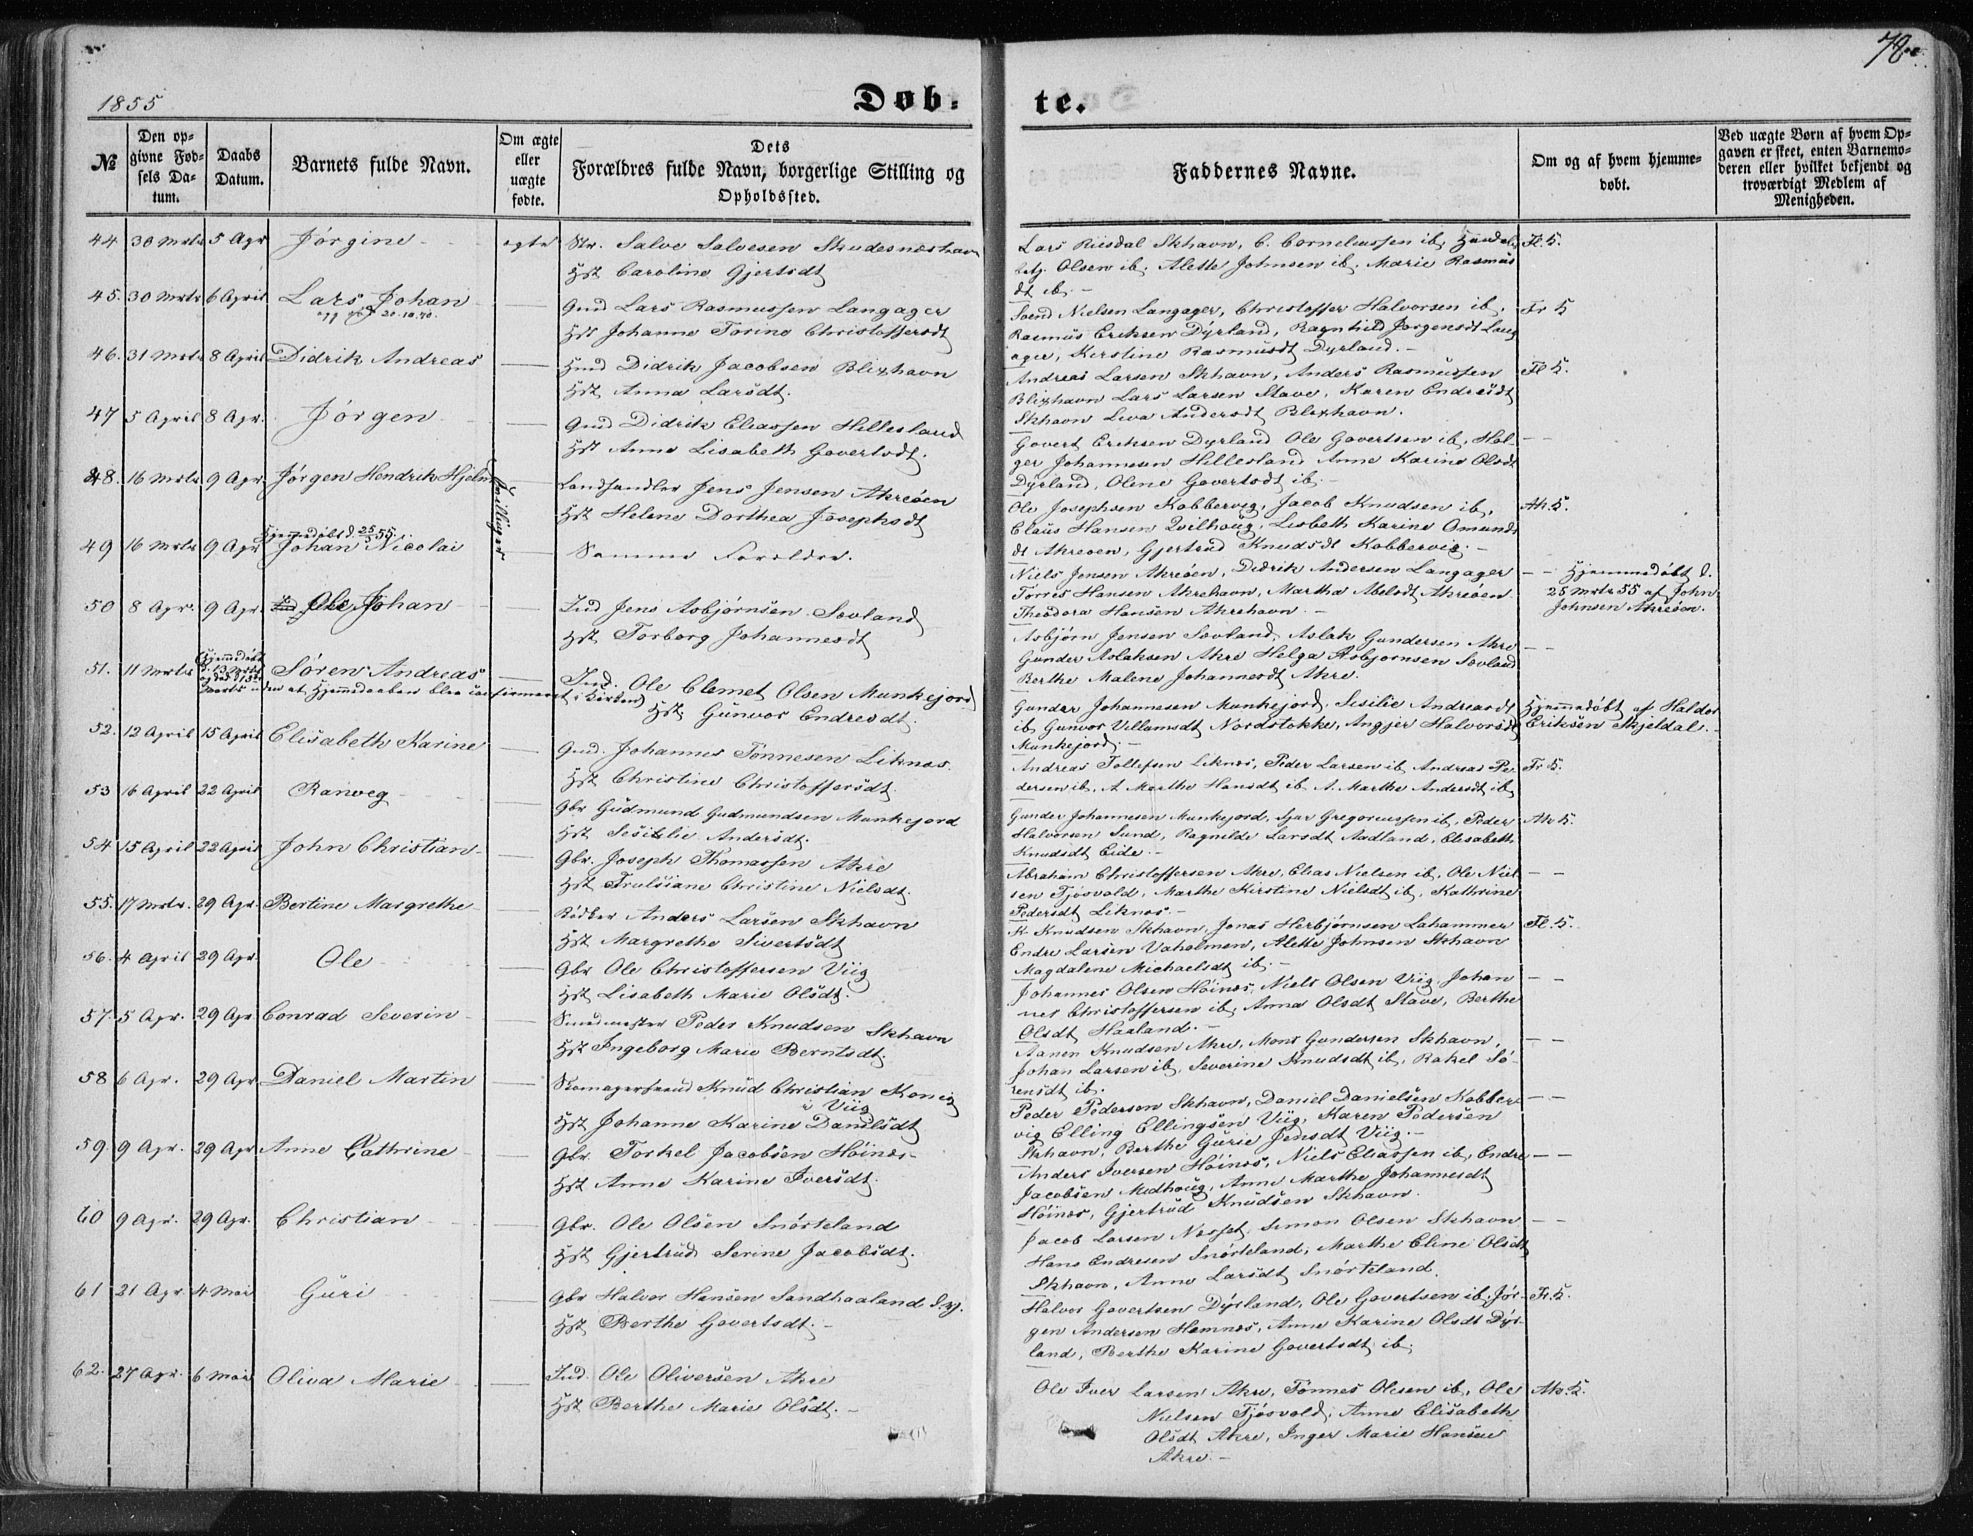 1855
Døb-
te.
78
№
Den op-
givne Fød-
sels Da-
tum.
Daabs
Datum.
Barnets fulde Navn.
Om ægte
eller
uægte
fødte.
Dets
Forældres fulde Navn, borgerlige Stilling og
Opholdssted.
Faddernes Navne.
Om og af hvem hjemme-
døbt.
Ved uægte Børn af hvem Op-
gaven er skeet, enten Barnemo-
deren eller hvilket bekjendt og
troværdigt Medlem af
Menigheden.
44 30 Mrts 5 Apr Jørgine ægte Salve Salvesen Skudesneshavn
Hst Caroline Gjertsdt
Lars Riisdal Skhavn, C. Corneleussen ib,
Olsen ib, Alette Johnsen ib, Marie Rasmus
dt ib.
Fl. K.
45. 30 Mrts 6 April Lars Johan
20.10.70.
Gmd Lars Rasmussen Langager
Hst Johanne Torine Christoffersdt
Svend Nielsen Langager, Christoffer Halvorsen ib,
Rasmus Eriksen Dyrland, Ragnhild Jørgensdt Lang
ager, Kirstine Rasmusdt Dyrland.
Fr K
46. 31 Mrts 8 April Didrik Andreas
Hmd Didrik Jacobsen Blixhavn
Hst Anna Larsdt.
Andreas Larsen Skhavn, Anders Rasmussen
Blixhavn Lars Larsen Stave, Karen Endresdt
Skhavn Liva Andersdt Blixhavn.
Fl K.
47 5 April 8 Apr. Jørgen
Gmd Didrik Eliassen Hillesland
Hst Anne Lisabeth Govertsdt.
Govert Eriksen Dyrland Ole Govertsen ib, Hol-
ger Johannesen Hillesland Anne Karine Olsdt
Dyrland, Olene Govertsdt ib.
48. 16 Mrts 9 Apr. Jørgen Hendrik Hjelm
Tvillinger
Landhandler Jens Jensen Akreøen
Hst Helene Dorthea Josephsdt
Ole Josephsen Kobbervig, Jacob Knudsen ib,
Claus Hansen Qvilhoug, Lisbeth Karine Omunds
dt Akreøen, Gjertrud Knudsdt Kobbervig.
Ak. K.
Hjemmedøbt d. 25/3 55.
49 16 Mrts 9 Apr Johan Nicolai
Samme Foreldre.
Niels Jensen Akreøen, Didrik Andersen Langager
Torres Hansen Akrehavn, Martha Abelsdt Akreøen
Theodora Hansen Akrehavn.
Hjemmedøbt d.
25 Mrts 55 af John
Johnsen Akreøen.
50 8 Apr. 9 Apr. Ole Johan
Ind Jens Asbjørnsen Sævland
Hst Torborg Johannesdt
Asbjørn Jensen Sævland, Aslak Gundersen Akre
Gunder Aslaksen Akre Helga Asbjørnsen Sævland
Berthe Malene Johannesdt Akre.
51. 11 Mrts Hjemmedøbt
d. 13 Marts
og død d. 15de
Søren Andreas
Marts uden at Hjemmedaaben blev confirmeret i Kirken
Ind. Ole Clemet Olsen Munkejord
Hst. Gunvor Endresdt.
Gunder Johannesen Munkejord, Sesilie Andreasdt
ib Gunvor Villamsdt Nordstokke, Angjer Halvorsdt
Munkejord.
Hjemmedøbt af Haldor
Eriksen Skjeldal.
52. 12 April 15 April Elisabeth Karine
Gmd. Johannes Tønnesen Liknes.
Hst Christine Christoffersdt
Andreas Tollefsen Liknes, Peder Larsen ib Andreas Pe-
dersen ib, A Marthe Hansdt ib A. Marthe Andersdt ib
Fr K.
53 16 April 22 April Ranveg
Gbr Gudmund Gudmundsen Munkejord
Hst Sesilie Andersdt.
Gunder Johannesen Munkejord, Ajar Gregoreussen ib, Peder
Halvorsen Sund, Ragnilde Larsdt Aadland, Elisabeth
Knudsdt Eide.
Ak K.
54 15 April 22 April John Christian
Gbr. Joseph Thomassen Akre
Hst Trulsiane Christine Nielsdt.
Abraham Christoffersen Akre, Elias Nielsen ib, Ole Niel
sen Tjøsvold, Marthe Kirstine Nielsdt ib, Kathrine
Pedersdt Liknes.
55. 17 Mrts. 29 Apr. Bertine Margrethe
Bødker Anders Larsen Skhavn
Hst Margrethe Sivertsdt
K Knudsen Skhavn, Jonas Herbjørnsen Lahammer
Endre Larsen Vaholmen, Alette Johnsen Skhavn
Magdalene Michaelsdt ib.
Fl. K.
56. 4 April 29 Apr. Ole
Gbr Ole Christoffersen Viig
Hst Lisabeth Marie Olsdt.
Johannes Olsen Høines, Niels Olsen Viig, Johan
nes Christoffersen ib, Anna Olsdt Stave, Berthe
Olsdt Haaland.
57. 5 Apr. 29 Apr Conrad Severin
Smedmester Peder Knudsen Skhavn
Hst Ingeborg Marie Berntsdt.
Aanen Knudsen Akre, Mons Gundersen Skhavn,
Johan Larsen ib, Severine Knudsdt ib, Rakel Sø-
rensdt ib.
58 6 Apr. 29 Apr Daniel Martin
Skomagersvend Knud Christian Konig
i Viig
Hst Johanne Karine Danilsdt
Peder Pedersen Skhavn, Daniel Danielsen Kobber-
vig Elling Ellingsen Viig, Karen Pedersen
Skhavn, Berthe Gurie Jensdt Viig.
59. 9 Apr. 29 Apr Anne Cathrine
Gbr. Torkel Jacobsen Høines
Hst Anne Karine Iversdt.
Anders Iversen Høines, Niels Eliassen ib, Endre
Jacobsen Medhoug, Anne Marthe Johannesdt
Høines, Gjertrud Knudsen Skhavn.
60 9 Apr. 29 Apr. Christian
Gbr. Ole Olsen Snørteland
Hst Gjertrud Serine Jacobsdt.
Jacob Larsen Nesset, Simon Olsen Skhavn
Hans Endresen Snørteland, Marthe Eline Olsdt
Skhavn, Anne Larsdt Snørteland.
61 21 Apr 4 Mai Guri
Gbr Halvor Hansen Sandhaaland
Hst Berthe Govertsdt.
Halvor Govertsen Dyrland, Ole Govertsen ib, Jør-
gen Andersen Hemnes, Anne Karine Olsdt Dyr-
land, Berthe Karine Govertsdt ib,
Fr. K.
62. 27 Apr. 6 Mai Oliva Marie
Ind. Ole Oliversen Akre
Hst Berthe Marie Olsdt.
Ole Iver Larsen Akre, Tønnes Olesen ib, Ole
Nielsen Tjøsvold, Anne Elisabeth
Olsdt Akre, Inger Marie Hansen
Akre.
Ak. K.